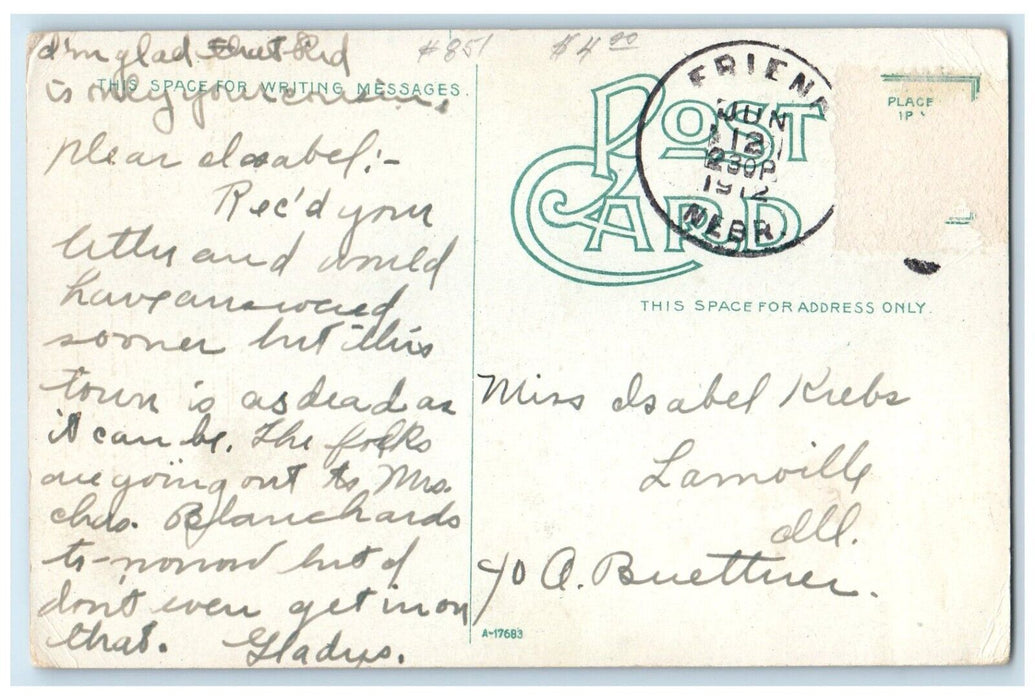 I'm glad that Red
is only your cousin.
#851
$4.00
THIS SPACE FOR WRITING MESSAGES.
Dear Isabel:-
Rec'd your
letter and would
have answered
sooner but this
town is as dead as
it can be. The folks
are going out to Mrs.
Chas. Blanchards
to-morrow but I
don't even get in on
that. Gladys.
POST
CARD
FRIEND
JUN
12
230P
1912
NEBR.
PLACE
THIS SPACE FOR ADDRESS ONLY.
Miss Isabel Krebs
Lamoille
Ill.
c/o A. Buettner.
A-17683